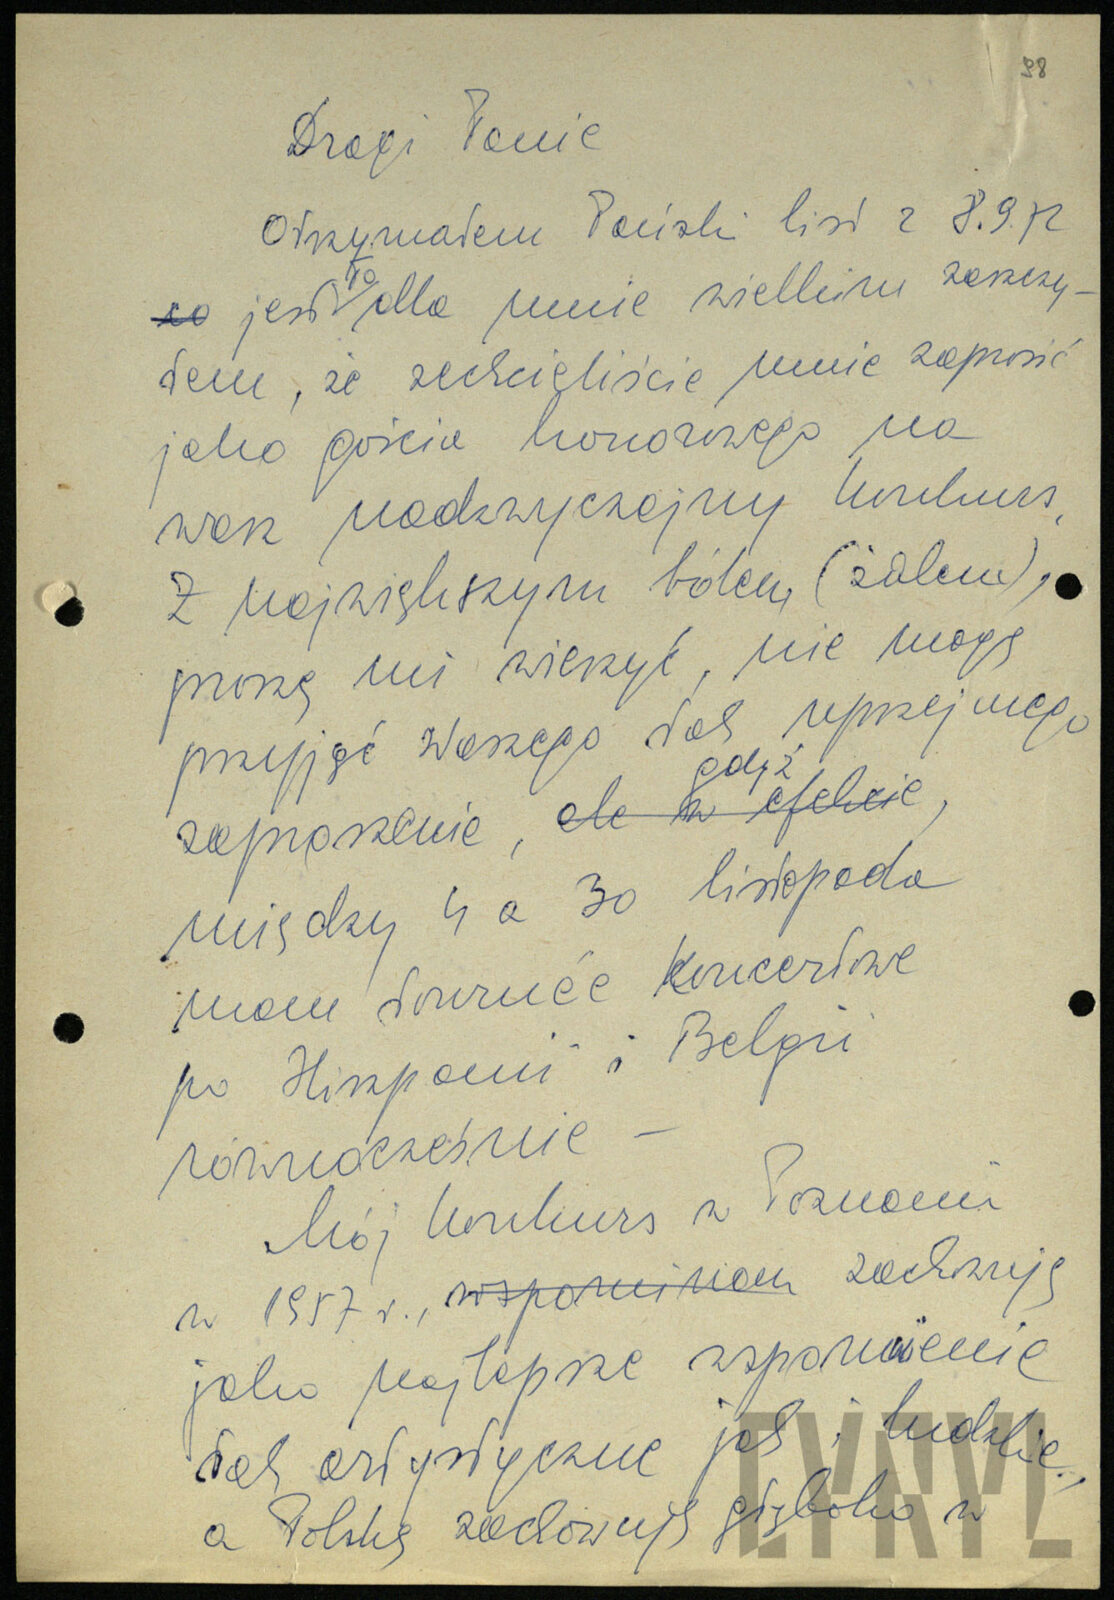 98
Drogi Panie
Otrzymałem Pański list z 8.9.72
co jest to dla mnie wielkim zaszczy-
tem, że zechcieliście mnie zaprosić
jako gościa honorowego na
wasz nadzwyczajny konkurs,
Z największym bólem (żalem),
proszę mi wierzyć, nie mogę
przyjąć waszego tak uprzejmego
gdyż
zaproszenie, ale w efekcie,
między 4 a 30 listopada
mam tournée koncertowe
po Hiszpanii i Belgii
równocześnie —
Mój konkurs w Poznaniu
w 1957 r., wspominam zachowuję
jako najlepsze wspomnienie
tak artystyczne jak i ludzkie,
a Polskę zachowuję głęboko w
CYRYL